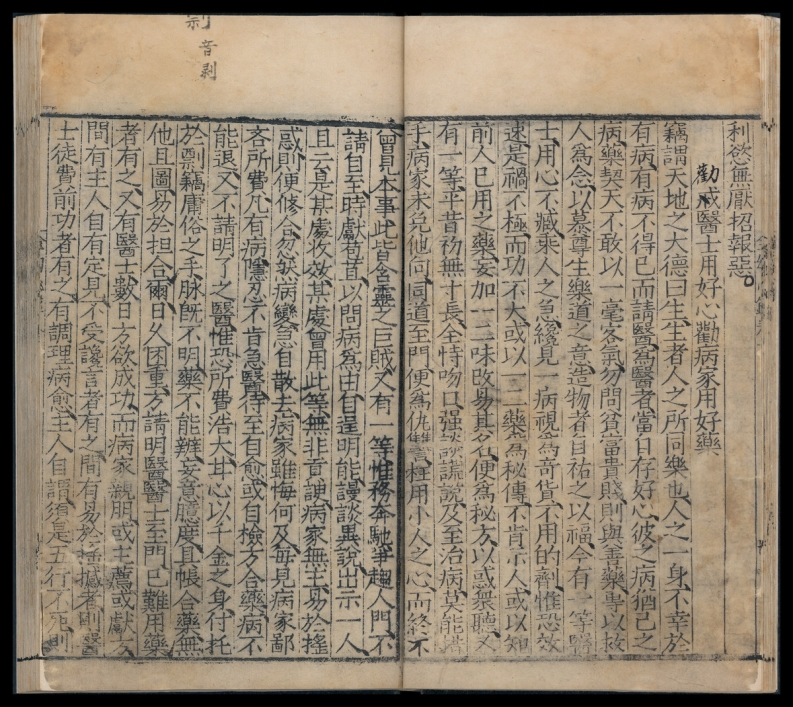 利慾無厭招報惡
勸戒醫士用好心勸病家用好藥
竊謂天地之大德曰生生者人之所同樂也人之一身不幸於
有病有病不得已而請醫爲醫者當自存好心彼之病猶己之
病藥契天不敢以一毫客氣勿問貧富貴賤則與善藥專以救
人爲念以慕尊生樂道之意造物者自祐之以福今有一等醫
士用心不臧乘人之急纔見一病視爲奇貨不用的劑惟恐效
速是禍不極而功不大或以一二藥爲秘傳不肯示人或以知
前人已用之藥妄加一二味改易其名便爲秘方以惑衆聽又
有一等平昔初無寸長全恃吻口强談謊說及至治病莫能措
手病家未免他向同道至門便爲仇讐枉用小人之心而終不
曾見本事此皆含靈之巨賊又有一等惟務奔馳爭趨人門不
請自至時獻苟苴以問病爲由自逞明能謾談異說出示一人
且云是某處收效某處曾用此等無非貢諛病家無主易於搖
惑則便修合忽然病變急自散去病家雖悔何及每見病家鄙
吝所費凡有病隱忍不肯急醫待至自愈或自檢方合藥病不
能退又不請明了之醫惟恐所費浩大甘心以千金之身付托
於剽竊庸俗之手脉旣不明藥不能辨妄意臆度且帳合藥無
他且圖易於担合爾日久困重方請明醫醫士至門已難用藥
者有之又有醫士數日方欲成功而病家親朋或主薦或獻方
間有主人自有定見不受讒言者有之間有易於搖撼者則醫
士徒費前功者有之有調理病愈主人自謂須是五行不死則
音剥